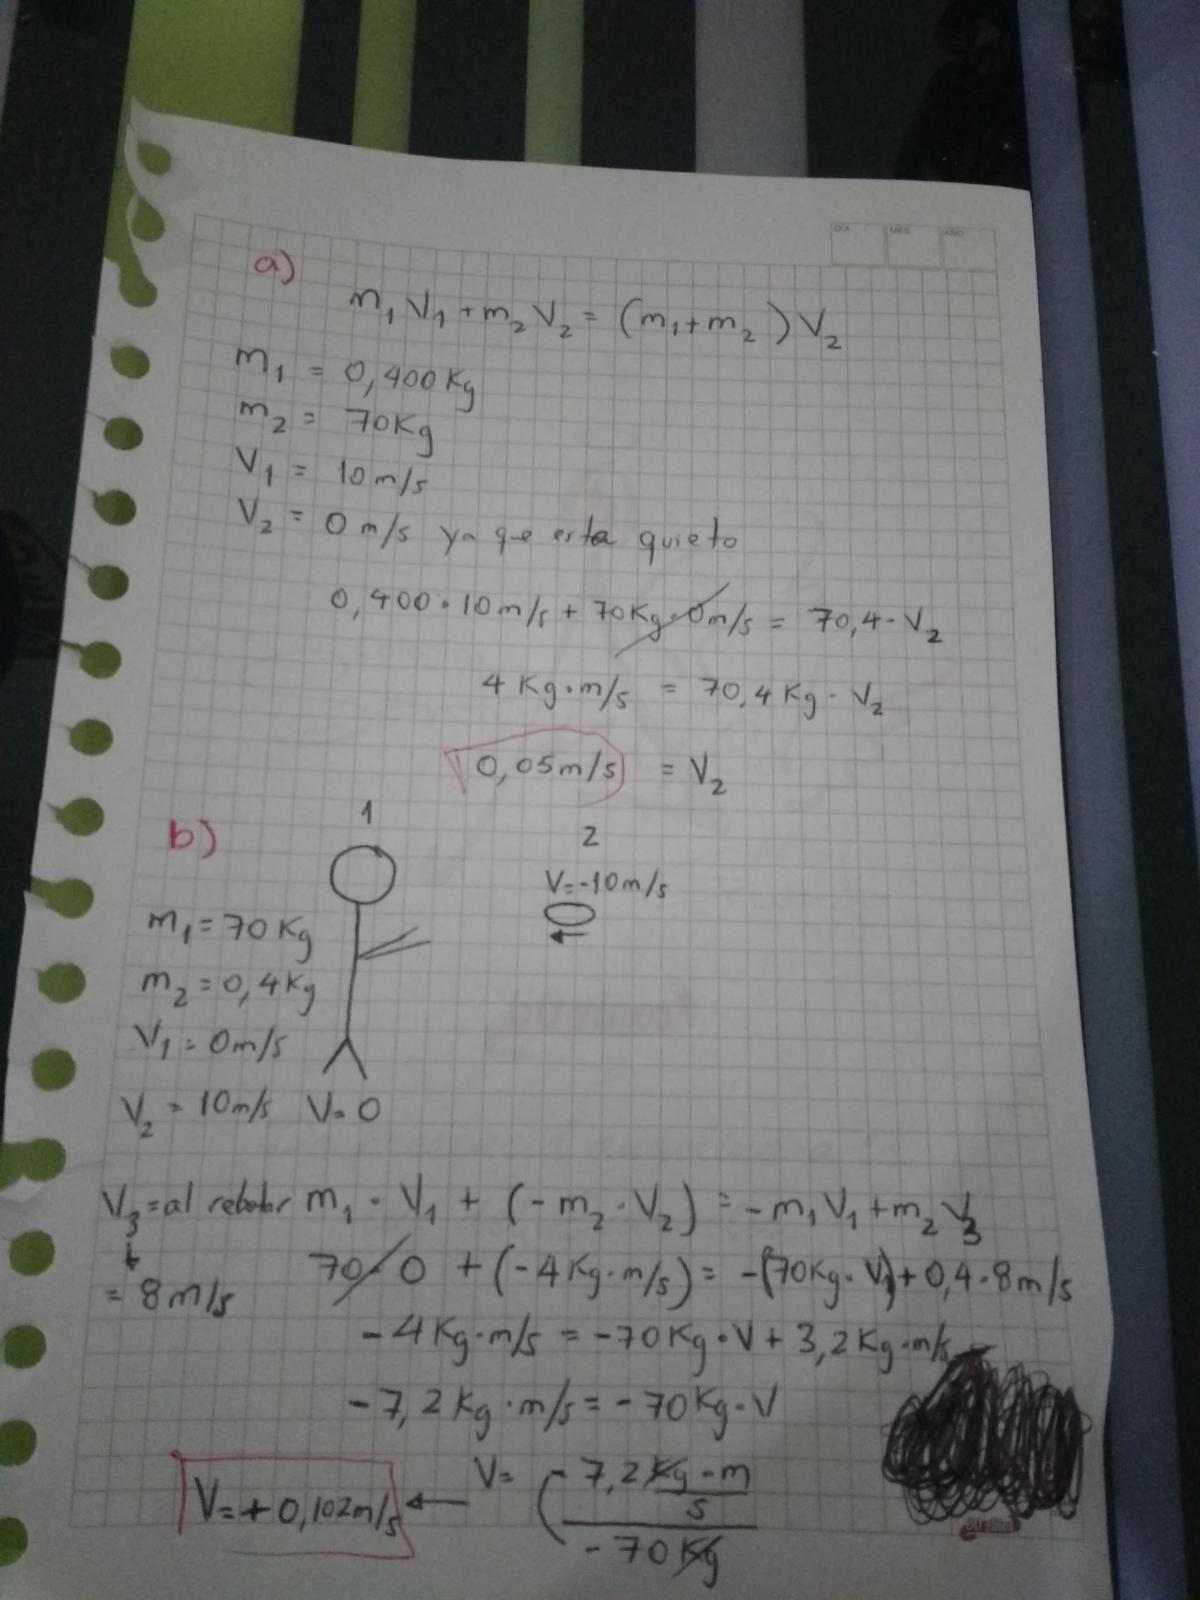 DÍA MES AÑO
a)
m₁ V₁ + m₂ V₂ = (m₁+m₂) V₂
m₁ = 0,400 Kg
m₂ = 70Kg
V₁ = 10 m/s
V₂ = 0 m/s ya que esta quieto
0,400 · 10 m/s + 70Kg · 0m/s = 70,4 · V₂
4 Kg·m/s = 70,4 Kg · V₂
0,05 m/s = V₂
b)
1
2
V=-10m/s
m₁ = 70 Kg
m₂ = 0,4 Kg
V₁ = 0 m/s
V₂ = 10 m/s V=0
V₃ = al rebotar m₁ · V₁ + (-m₂ · V₂) = -m₁V₁ + m₂ V₃
70·0 + (-4 Kg·m/s) = -(70Kg·V₁) + 0,4·8m/s
= 8 m/s
-4 Kg·m/s = -70Kg·V + 3,2 Kg·m/s
-7,2 Kg·m/s = -70 Kg·V
V= (-7,2 Kg·m/s / -70 Kg
V=+0,102 m/s